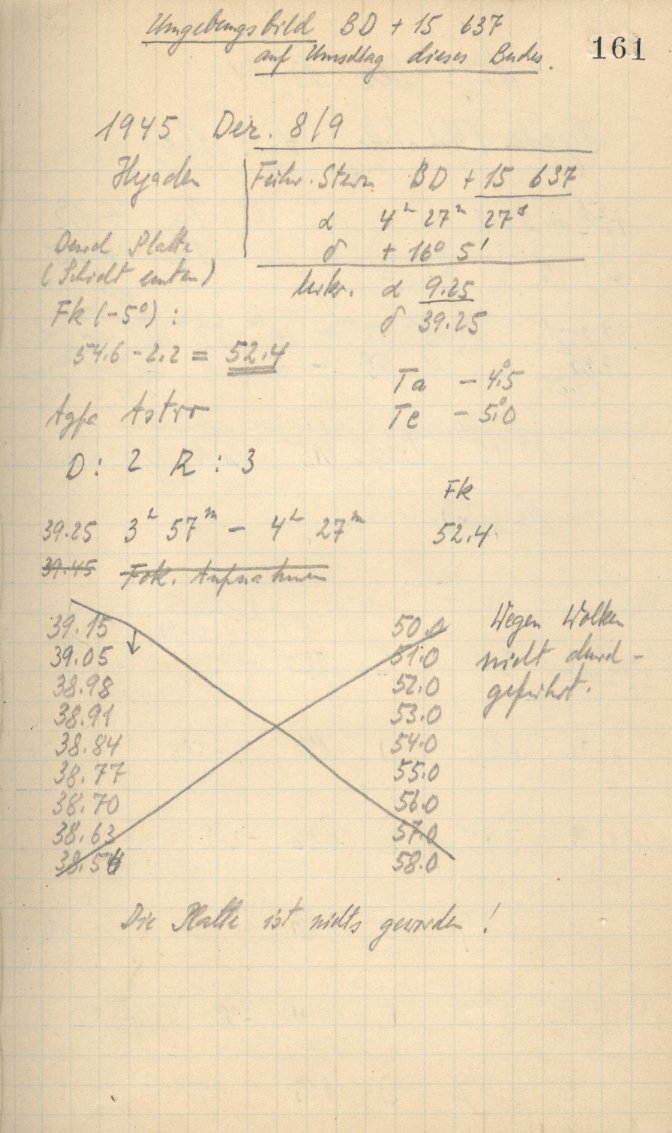 Umgebungsbild BD + 15 637
auf Umschlag dieses Buches.
161
1945 Dez. 8/9
Hyaden
Führ. Stern BD + 15 637
α 4h 27m 27s
δ + 16° 5'
Durch Platte
(Schicht unten)
Fk (-5°) :
54.6 - 2.2 = 52.4
Mikr. α 9.25
δ 39.25
Ta - 4.°5
Te - 5.°0
Agfa Astro
D : 2 R : 3
Fk
39.25 3h 57m - 4h 27m 52.4
39.45 Fok. Aufnahmen
39.15 50.0
39.05 51.0
38.98 52.0
38.91 53.0
38.84 54.0
38.77 55.0
38.70 56.0
38.63 57.0
38.56 58.0
Wegen Wolken
nicht durch-
geführt.
Die Platte ist nichts geworden !